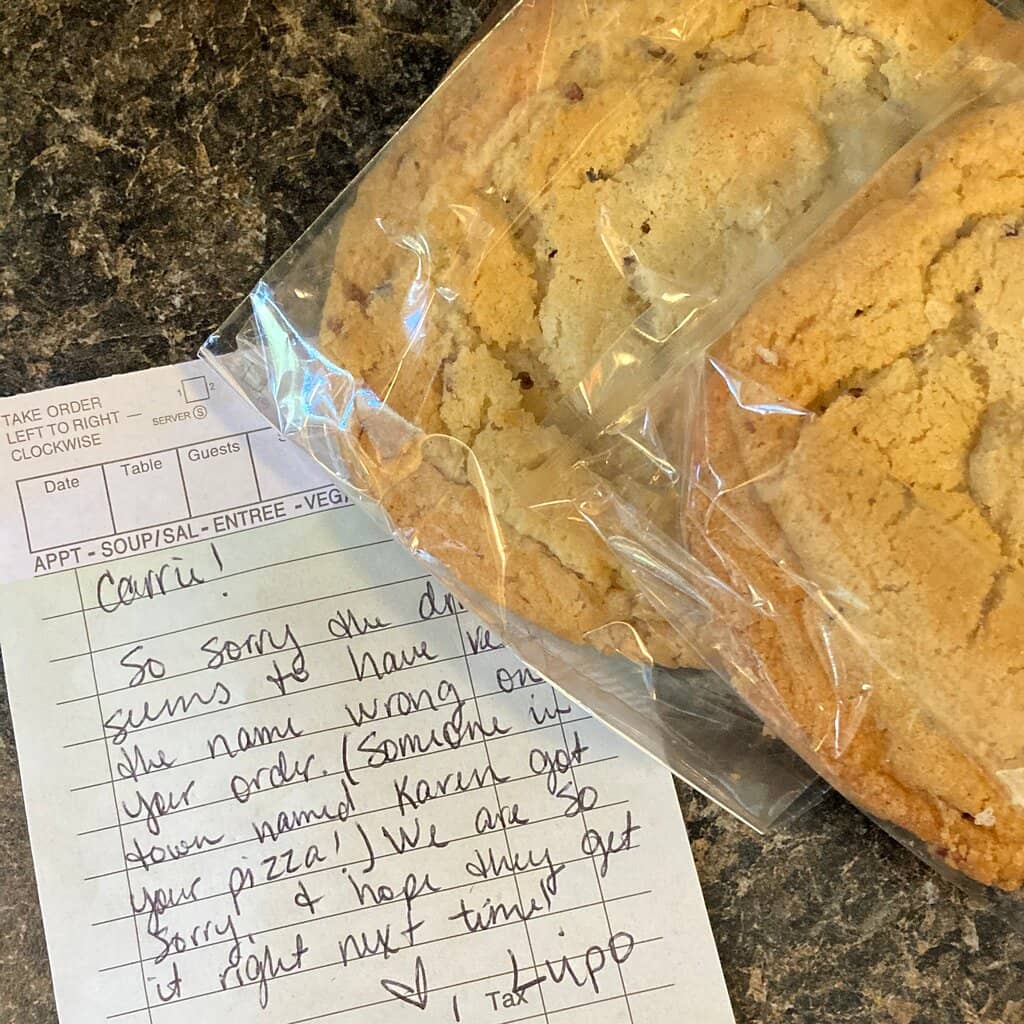 TAKE ORDER
LEFT TO RIGHT —
CLOCKWISE
1 2
SERVER Ⓢ
Date Table Guests
APPT - SOUP/SAL - ENTREE - VEG
Carrie!
So sorry the
seems to have
the name wrong on
your order. (Someone in
town named Karen got
your pizza!) We are so
sorry & hope they get
it right next time!
♡, Lupo
Tax